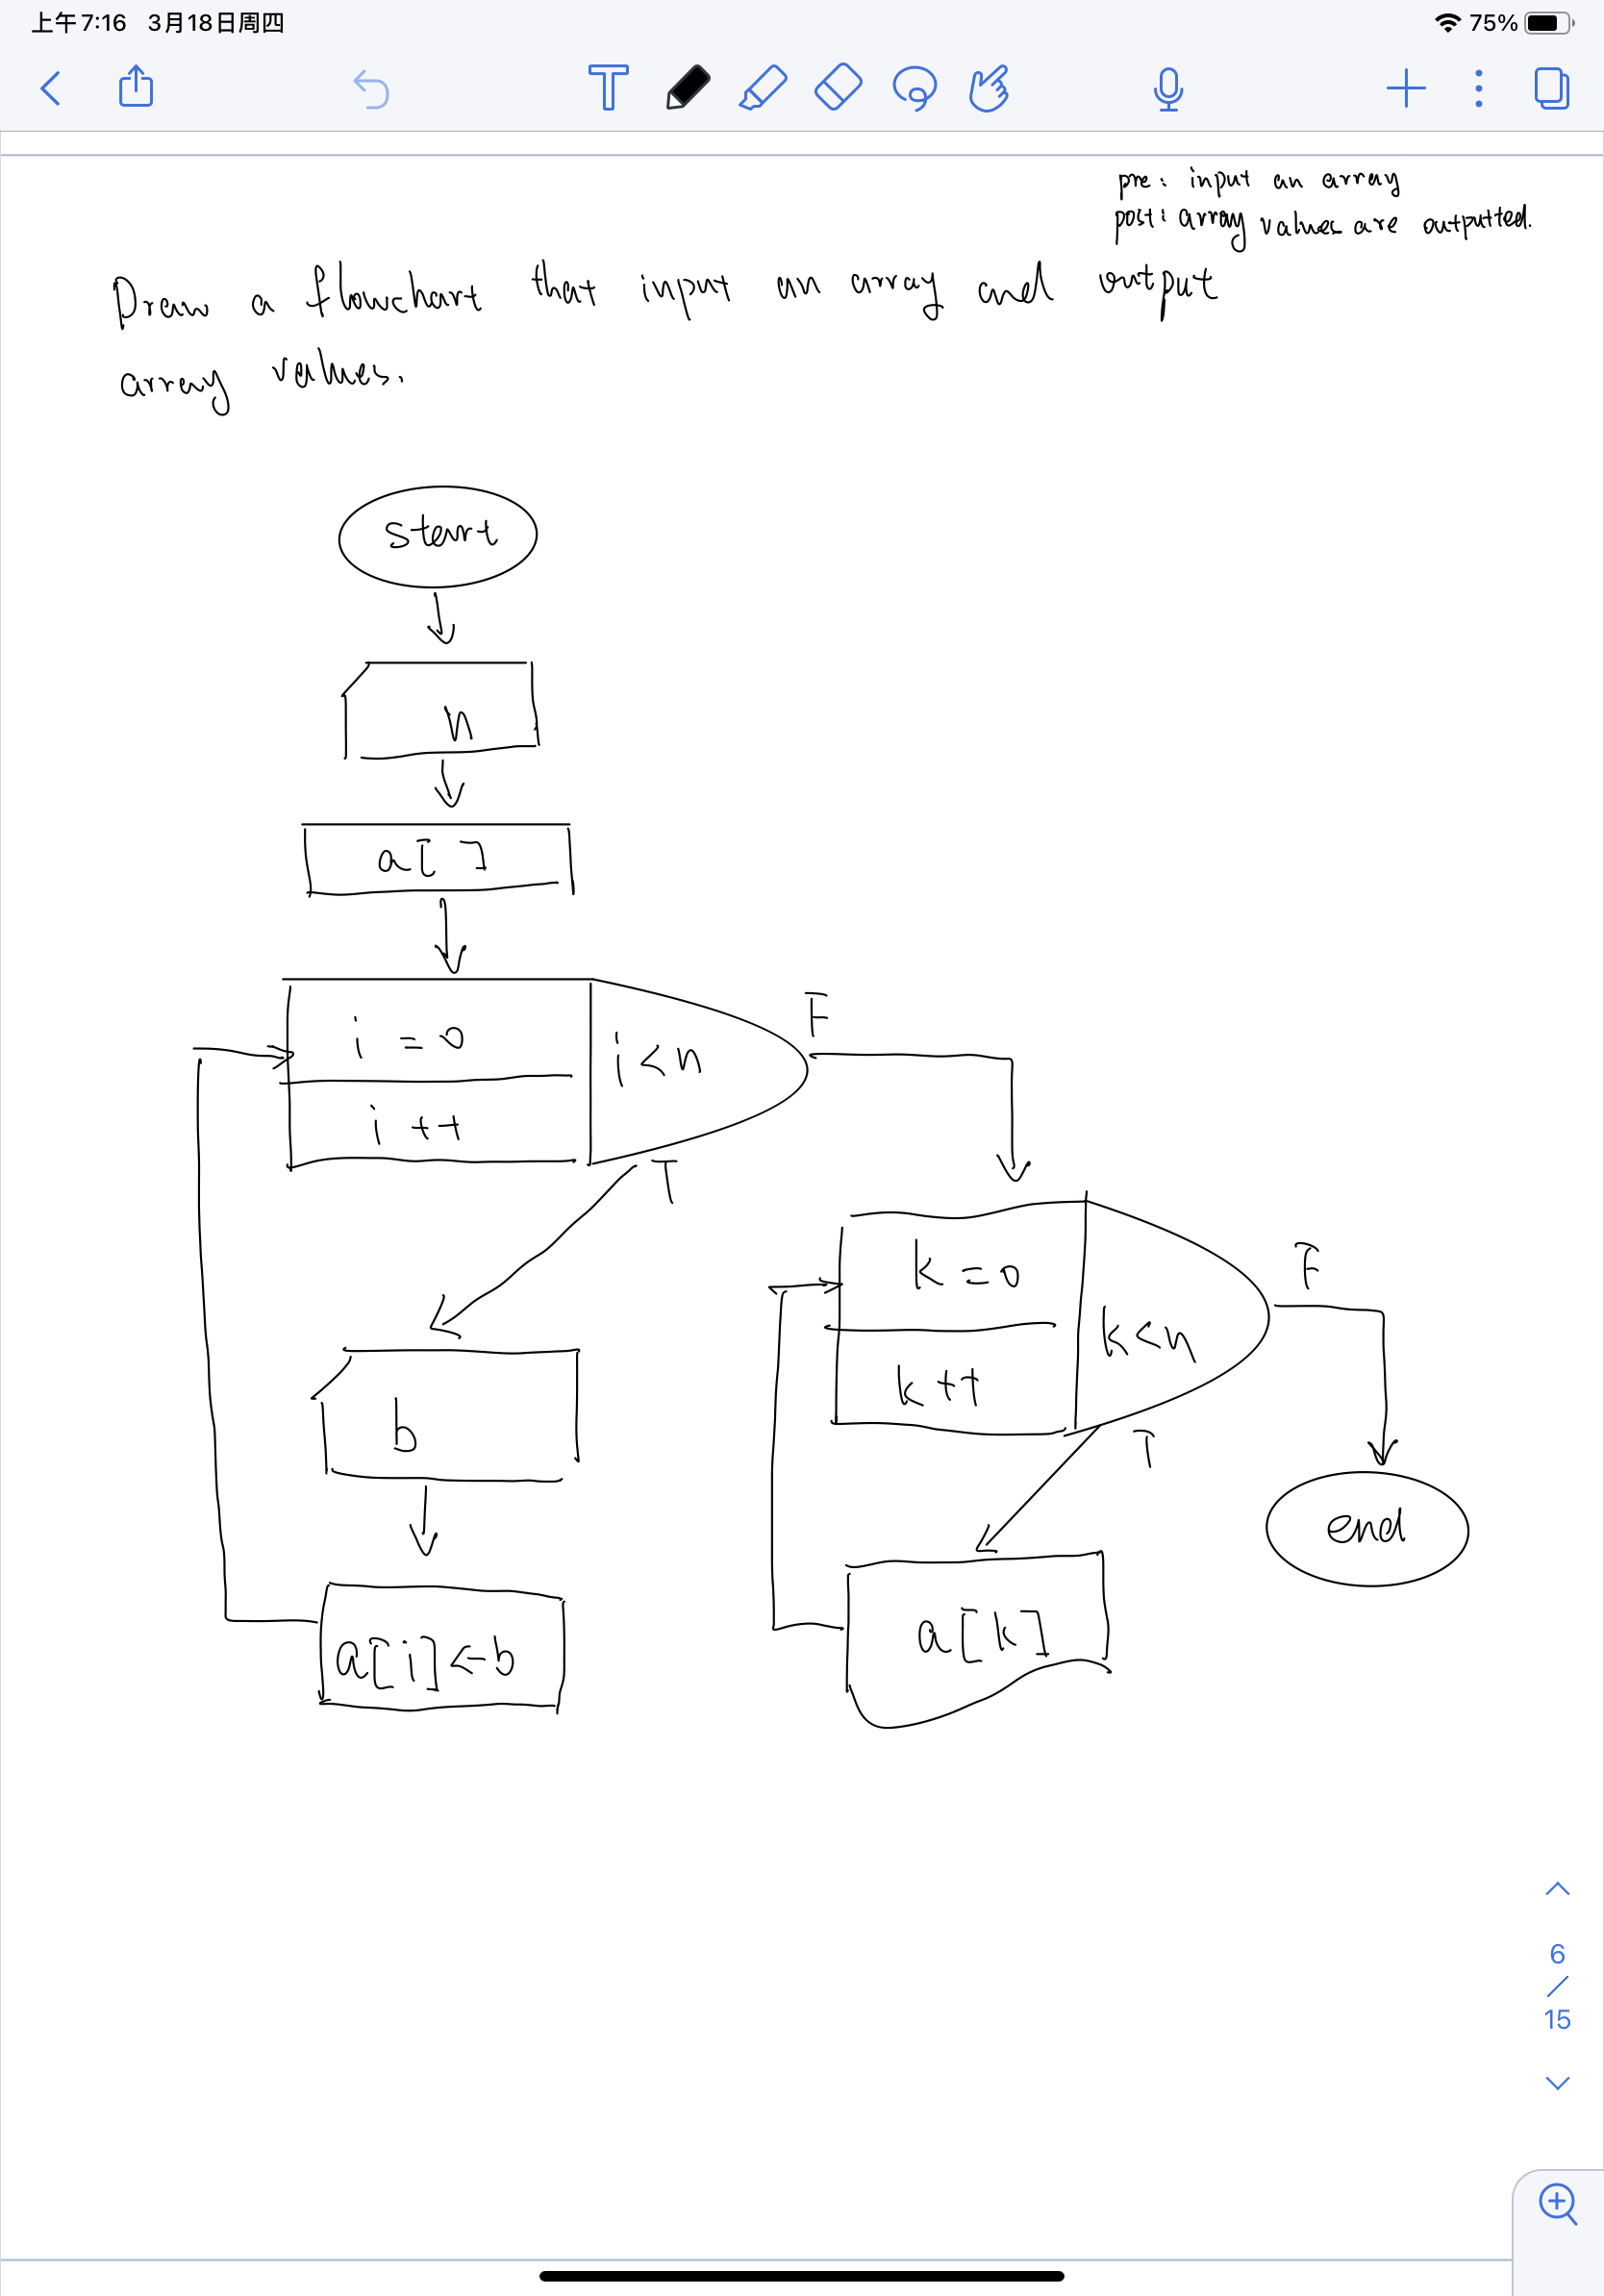 上午7:16 3月18日周四
75%
T
pre: input an array
post: array values are outputted.
Draw a flowchart that input an array and output
array values.
start
n
a[ ]
i = 0
i ++
i < n
F
T
b
a[i] ← b
k = 0
k ++
k < n
F
T
a[k]
end
6
/
15